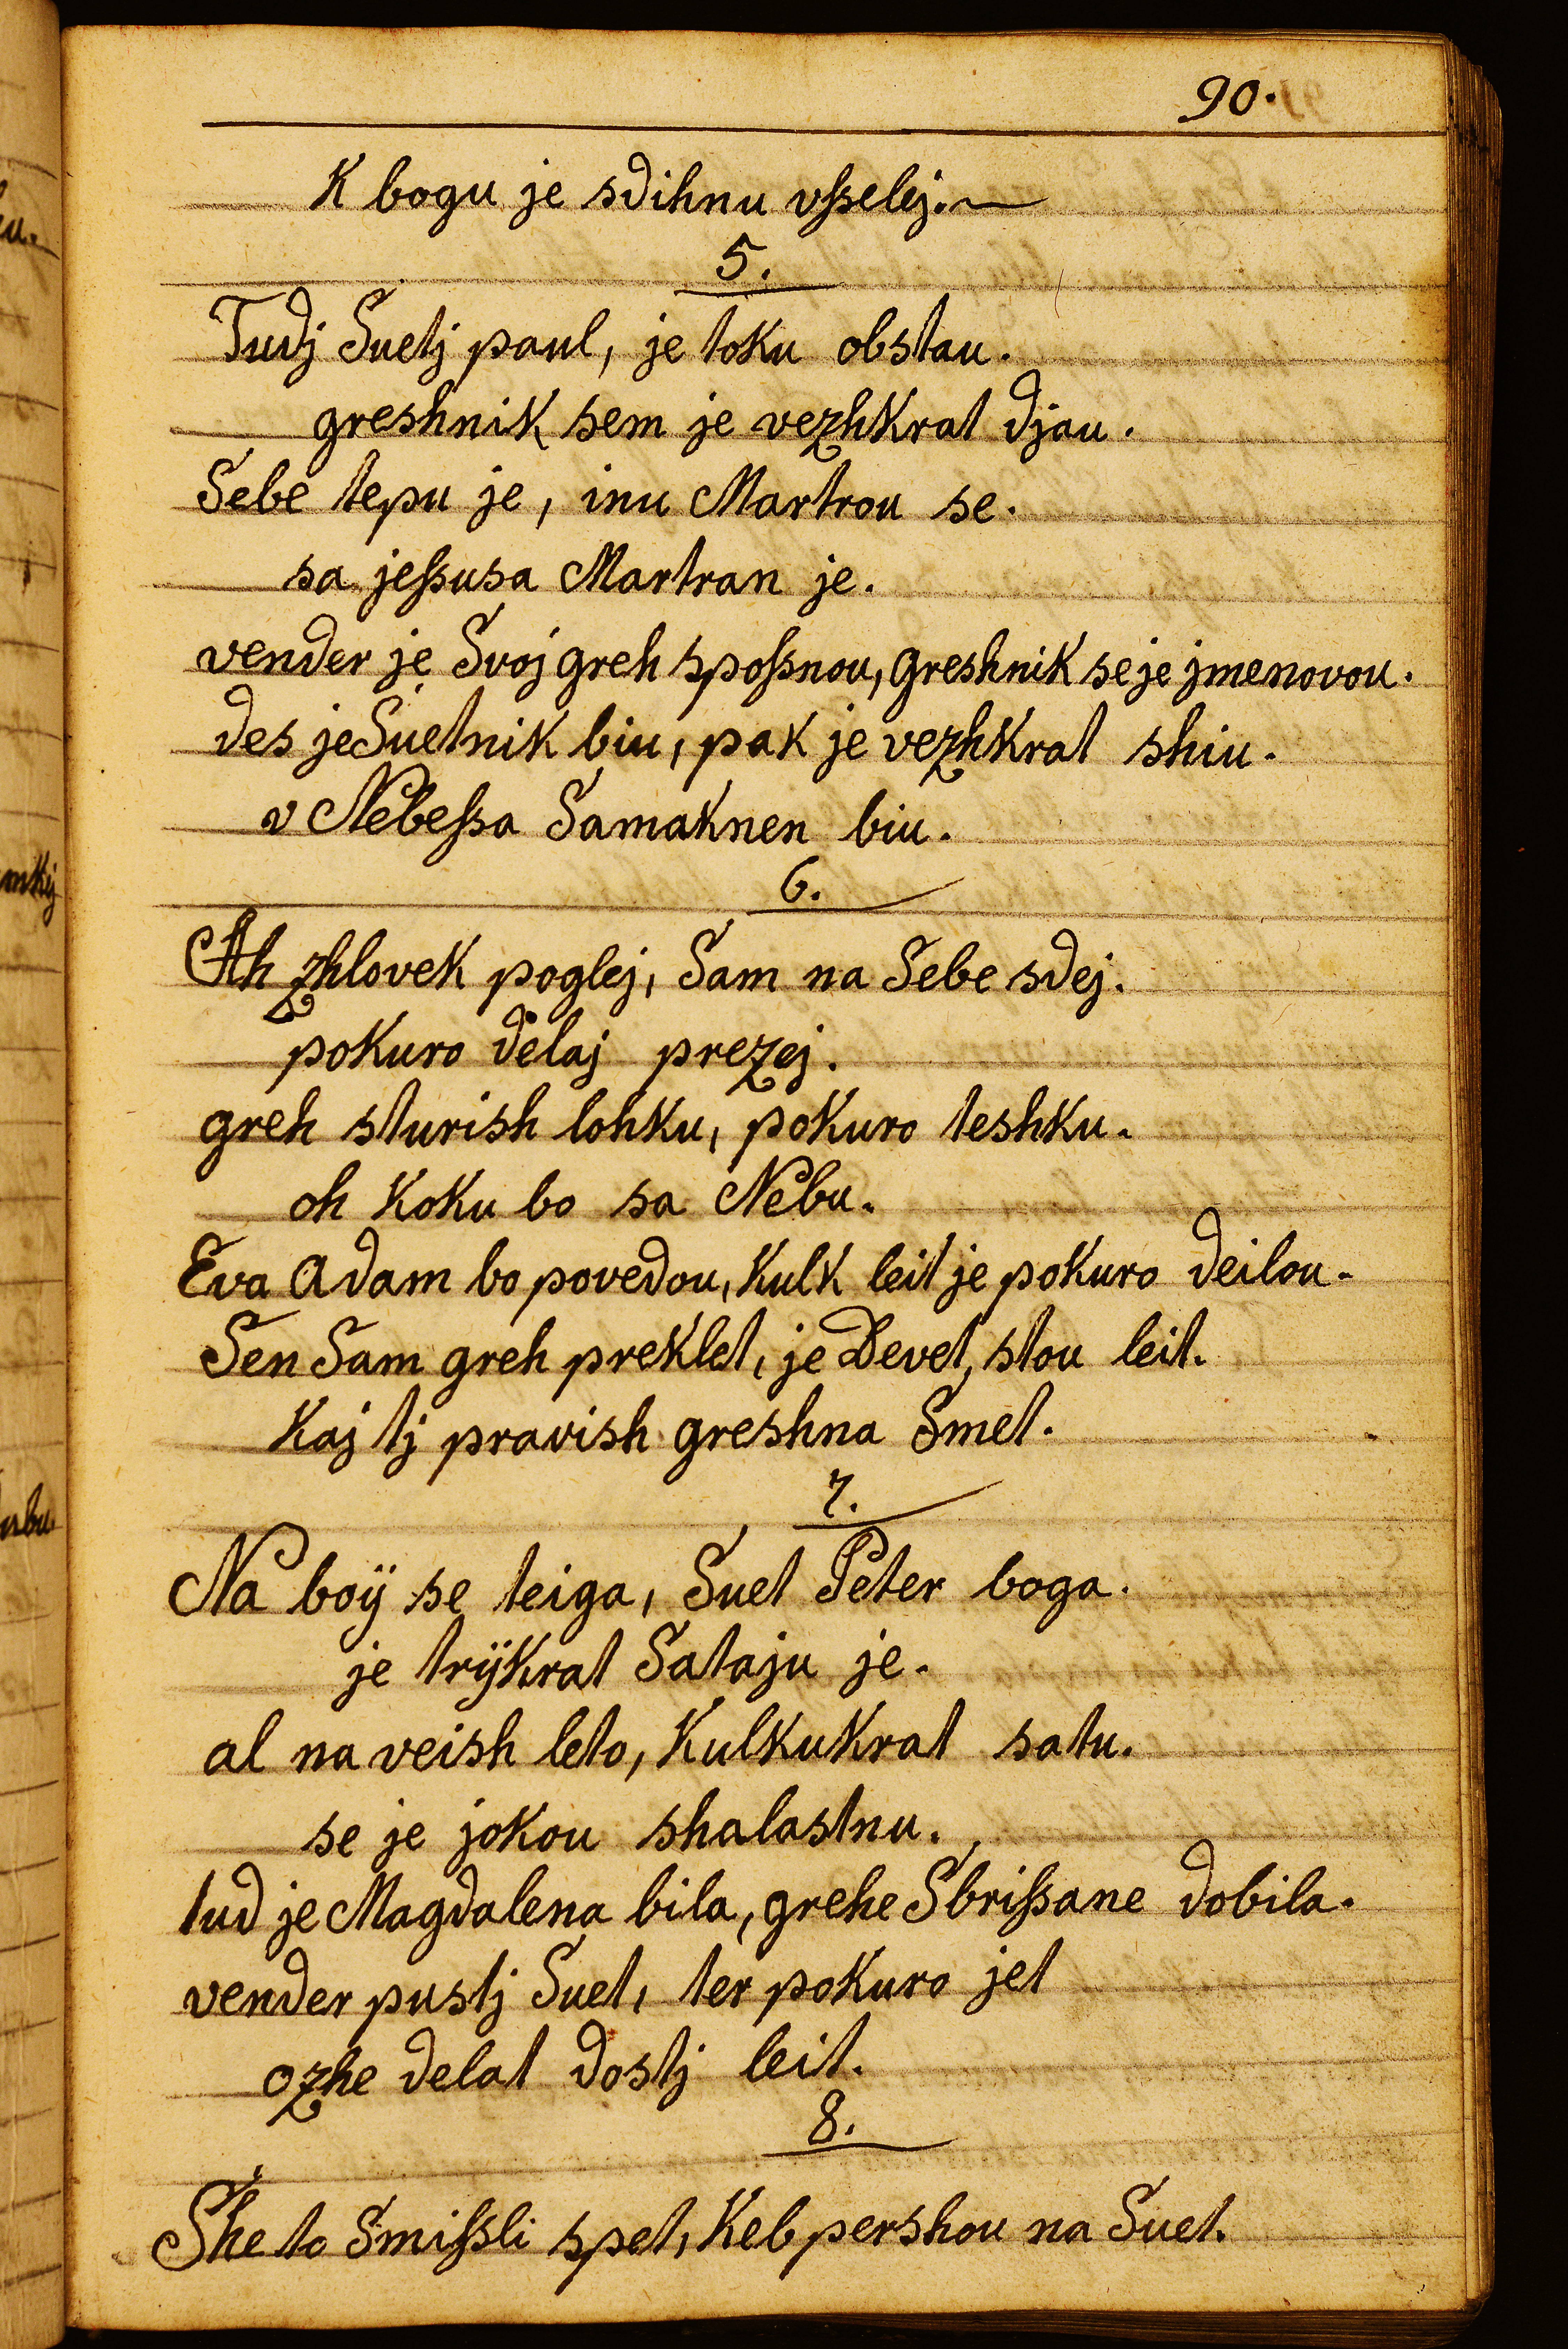 90.
K bogu je sdihnu vſselej.
5.
Tudj Suetj paul, je toku obstau.
greshnik sem je vezhkrat djau.
Sebe tepu je, inu Martrou se.
sa jeſsusa Martran je.
vender je Svoj greh spoſsnou, greshnik se je jmenovou.
des je Suetnik biu, pak je vezhkrat shiu.
v Nebeſsa Samaknen biu.
6.
Ah zhlovek poglej, Sam na Sebe sdej.
pokuro delaj prezej.
greh sturish lohku, pokuro teshku.
oh koku bo sa Nebu.
Eva Adam bo povedou, kulk leit je pokuro deilou.
Sen Sam greh preklet, je Devet, stou leit.
kaj tj pravish greshna Smet.
7.
Na boÿ se teiga, Suet Peter boga.
je trÿkrat Sataju je.
al na veish leto, kulkukrat satu.
se je jokou shalastnu.
tud je Magdalena bila, grehe Sbriſsane dobila.
vender pustj Suet, ter pokuro jet
ozhe delat dostj leit.
8.
She to Smiſsli spet, keb pershou na Suet.